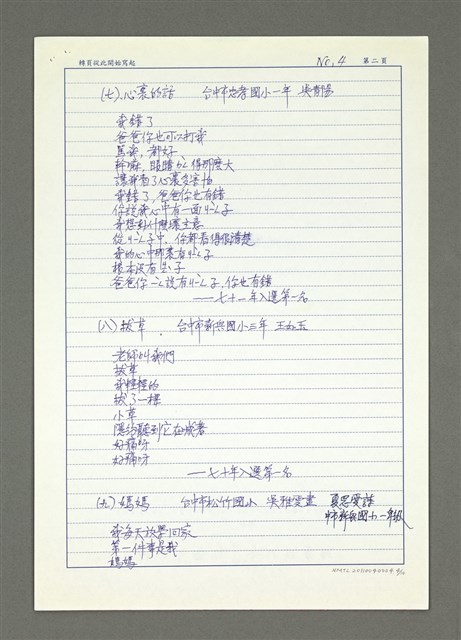 轉頁從此開始寫起 No. 4 第二頁
(七)、心裏的話 台中市忠孝國小一年 吳
我錯了
爸爸你也可以打我
罵我,都好
幹嘛,眼睛ㄉㄥ得那麼大
讓我看了心裏受害怕
我錯了,爸爸你也有錯
你說我心中有一面ㄐㄧㄥˋ子
我想到什麼壞主意
從ㄐㄧㄥˋ子中,你都看得很清楚
我的心中那裏有ㄐㄧㄥˋ子
根本沒有ㄐㄧㄥˋ子
爸爸你一ㄓˊ說有ㄐㄧㄥˋ子,你也有錯
——七十一年入選第一名
(八)、拔草 台中市新興國小三年 王
老師叫我們
拔草
我輕輕的
拔了一棵
小草
隱約聽到它在喊著
好痛呀
好痛呀
——七十年入選第一名
(九)、媽媽 台中市松竹國小 吳雅雯畫 夏思雯詩
中市新興國小一年級
我每天放學回家
第一件事是找
媽媽